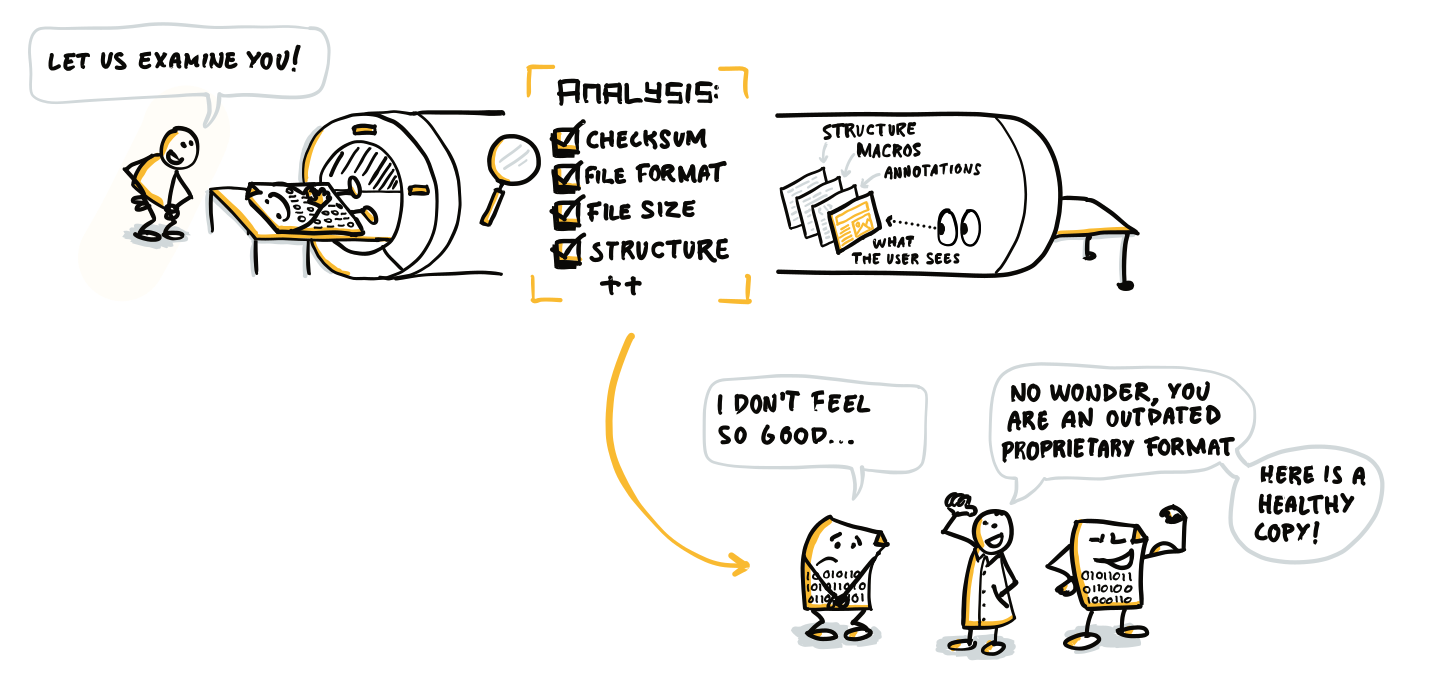 LET US EXAMINE YOU!
ANALYSIS:
CHECKSUM
FILE FORMAT
FILE SIZE
STRUCTURE
++
STRUCTURE
MACROS
ANNOTATIONS
WHAT
THE USER SEES
I DON'T FEEL
SO GOOD...
NO WONDER, YOU
ARE AN OUTDATED
PROPRIETARY FORMAT
HERE IS A
HEALTHY
COPY!
01011011
0110100
1000110